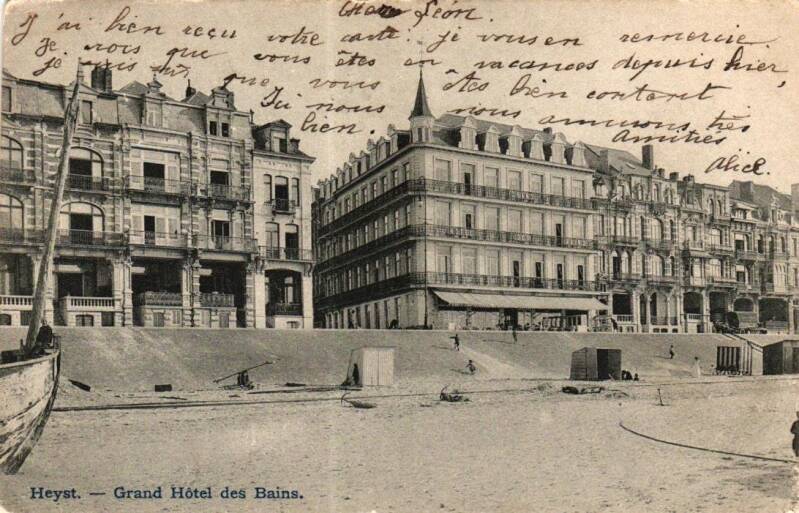 Cher Léon.
J'ai bien reçu votre carte. je vous en remercie
je vois que vous êtes en vacances depuis hier,
je suis que vous êtes bien content
Ici nous nous amusons très
bien. amitiés
Alice.
Heyst. — Grand Hôtel des Bains.